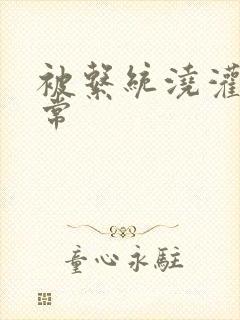 被繫統澆灌
常
童心永駐